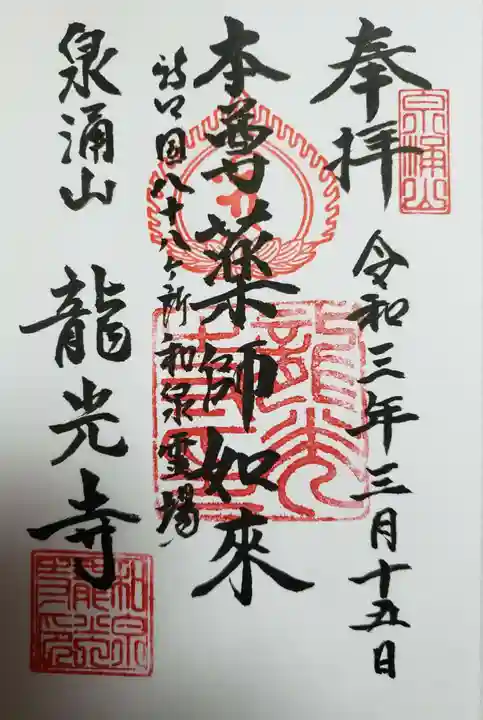 奉拝
泉涌山
令和三年三月十五日
本尊薬師如來
新四国八十八ヶ所和泉霊場
龍光寺
泉涌山 龍光寺
和泉
龍光
寺印